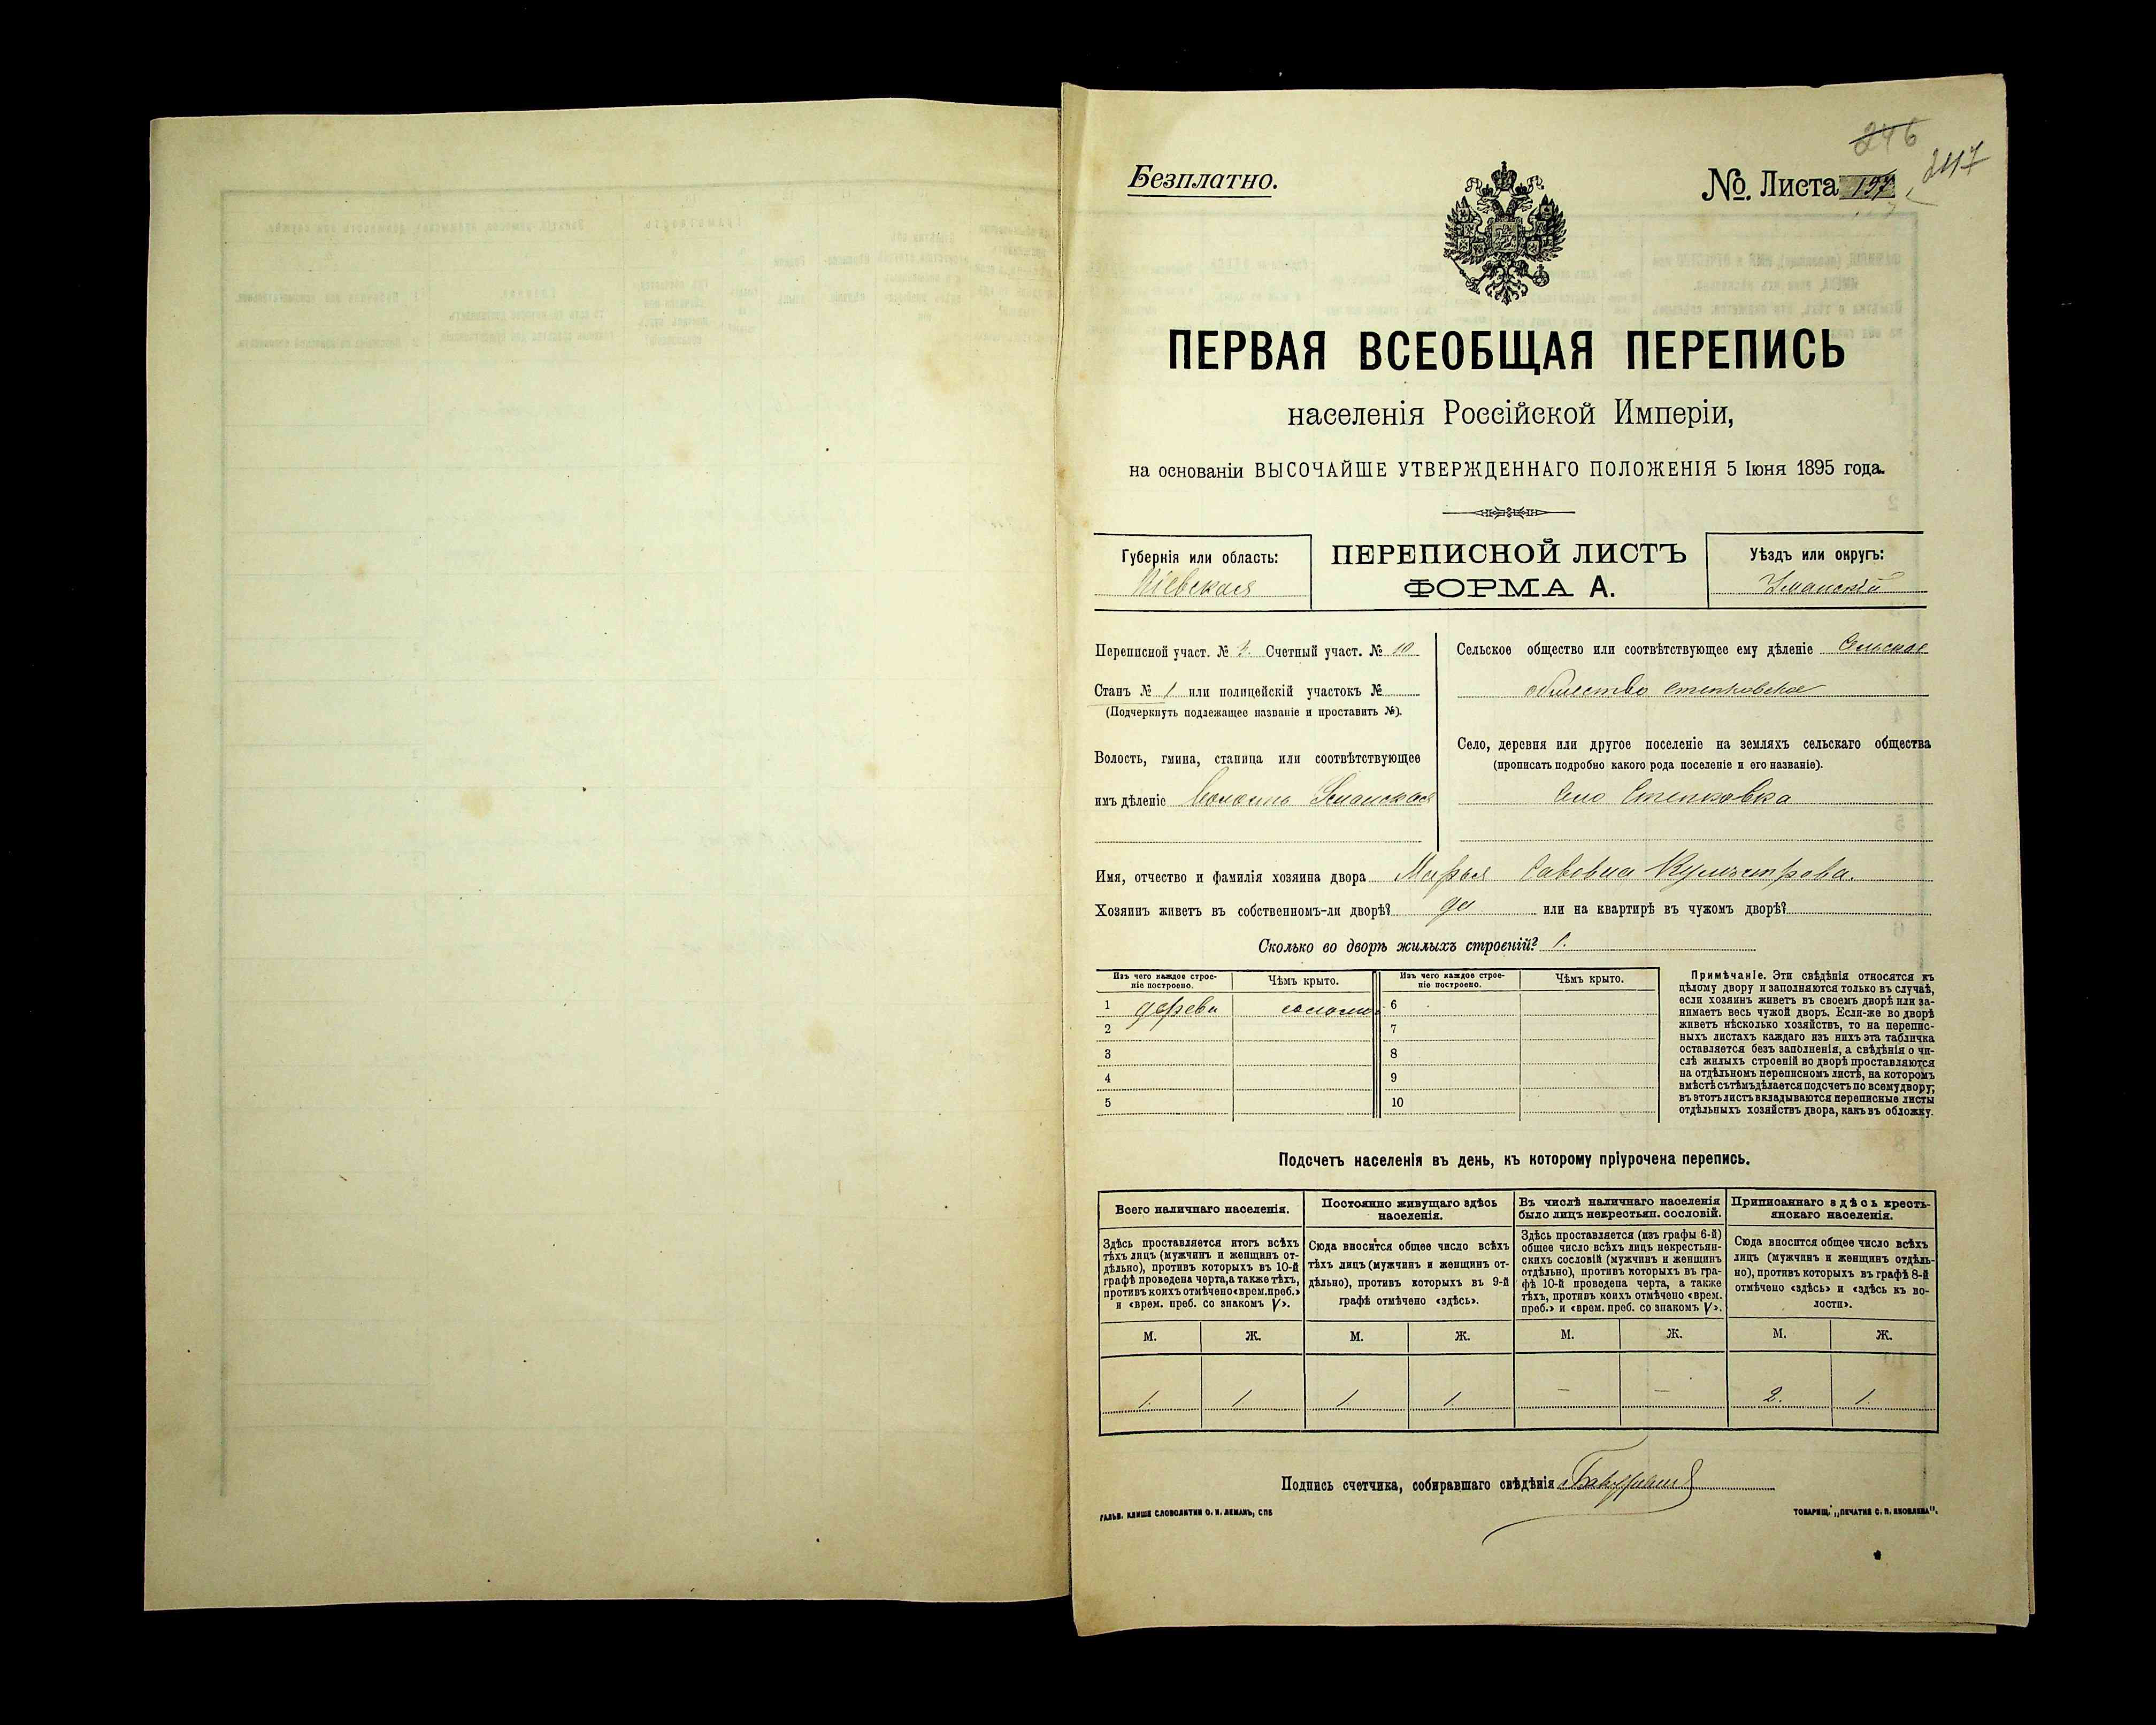 246
247
Безплатно.
№. Листа 157
ПЕРВАЯ ВСЕОБЩАЯ ПЕРЕПИСЬ
населенія Россійской Имперіи,
на основаніи ВЫСОЧАЙШЕ УТВЕРЖДЕННАГО ПОЛОЖЕНІЯ 5 Іюня 1895 года.
Губернія или область:
Кіевская
ПЕРЕПИСНОЙ ЛИСТЪ
ФОРМА А.
Уѣздъ или округъ:
Уманскій
Переписной участ. № 3. Счетный участ. № 10
Станъ № 1 или полицейскій участокъ №
(Подчеркнуть подлежащее названіе и проставить №).
Волость, гмина, станица или соотвѣтствующее
имъ дѣленіе Волость Уманская
Сельское общество или соотвѣтствующее ему дѣленіе Сельское
общество Степковское
Село, деревня или другое поселеніе на земляхъ сельскаго общества
(прописать подробно какого рода поселеніе и его названіе).
Село Степковка
Имя, отчество и фамилія хозяина двора Марья Савовна
Хозяинъ живетъ въ собственномъ-ли дворѣ? да или на квартирѣ въ чужомъ дворѣ?
Сколько во дворѣ жилыхъ строеній? 1.
Изъ чего каждое строе-
ніе построено.
Чѣмъ крыто.
Изъ чего каждое строе-
ніе построено.
Чѣмъ крыто.
1 дерева солома 6
2 7
3 8
4 9
5 10
Примѣчаніе. Эти свѣдѣнія относятся къ
цѣлому двору и заполняются только въ случаѣ,
если хозяинъ живетъ въ своемъ дворѣ или за-
нимаетъ весь чужой дворъ. Если-же во дворѣ
живетъ нѣсколько хозяйствъ, то на перепис-
ныхъ листахъ каждаго изъ нихъ эта табличка
оставляется безъ заполненія, а свѣдѣнія о чи-
слѣ жилыхъ строеній во дворѣ проставляются
на отдѣльномъ переписномъ листѣ, на которомъ
вмѣстѣ съ тѣмъ дѣлается подсчетъ по всему двору;
въ этотъ листъ вкладываются переписные листы
отдѣльныхъ хозяйствъ двора, какъ въ обложку.
Подсчетъ населенія въ день, къ которому пріурочена перепись.
Всего наличнаго населенія.
Постоянно живущаго здѣсь
населенія.
Въ числѣ наличнаго населенія
было лицъ некрестьян. сословій.
Приписаннаго здѣсь кресть-
янскаго населенія.
Здѣсь проставляется итогъ всѣхъ
тѣхъ лицъ (мужчинъ и женщинъ от-
дѣльно), противъ которыхъ въ 10-й
графѣ проведена черта, а также тѣхъ,
противъ коихъ отмѣчено «врем. преб.»
и «врем. преб. со знакомъ V».
Сюда вносится общее число всѣхъ
тѣхъ лицъ (мужчинъ и женщинъ от-
дѣльно), противъ которыхъ въ 9-й
графѣ отмѣчено «здѣсь».
Здѣсь проставляется (изъ графы 6-й)
общее число всѣхъ лицъ некрестьян-
скихъ сословій (мужчинъ и женщинъ
отдѣльно), противъ которыхъ въ гра-
фѣ 10-й проведена черта, а также
тѣхъ, противъ коихъ отмѣчено «врем.
преб.» и «врем. преб. со знакомъ V».
Сюда вносится общее число всѣхъ
лицъ (мужчинъ и женщинъ отдѣль-
но), противъ которыхъ въ графѣ 8-й
отмѣчено «здѣсь» и «здѣсь къ во-
лости».
М. Ж. М. Ж. М. Ж. М. Ж.
1. 1 1 1. — — 2. 1.
Подпись счетчика, собиравшаго свѣдѣнія
ГАЛЬВ. КЛИШЕ СЛОВОЛИТНИ О. И. ЛЕМАНЪ, СПБ
ТОВАРИЩ. „ПЕЧАТНЯ С. П. ЯКОВЛЕВА".